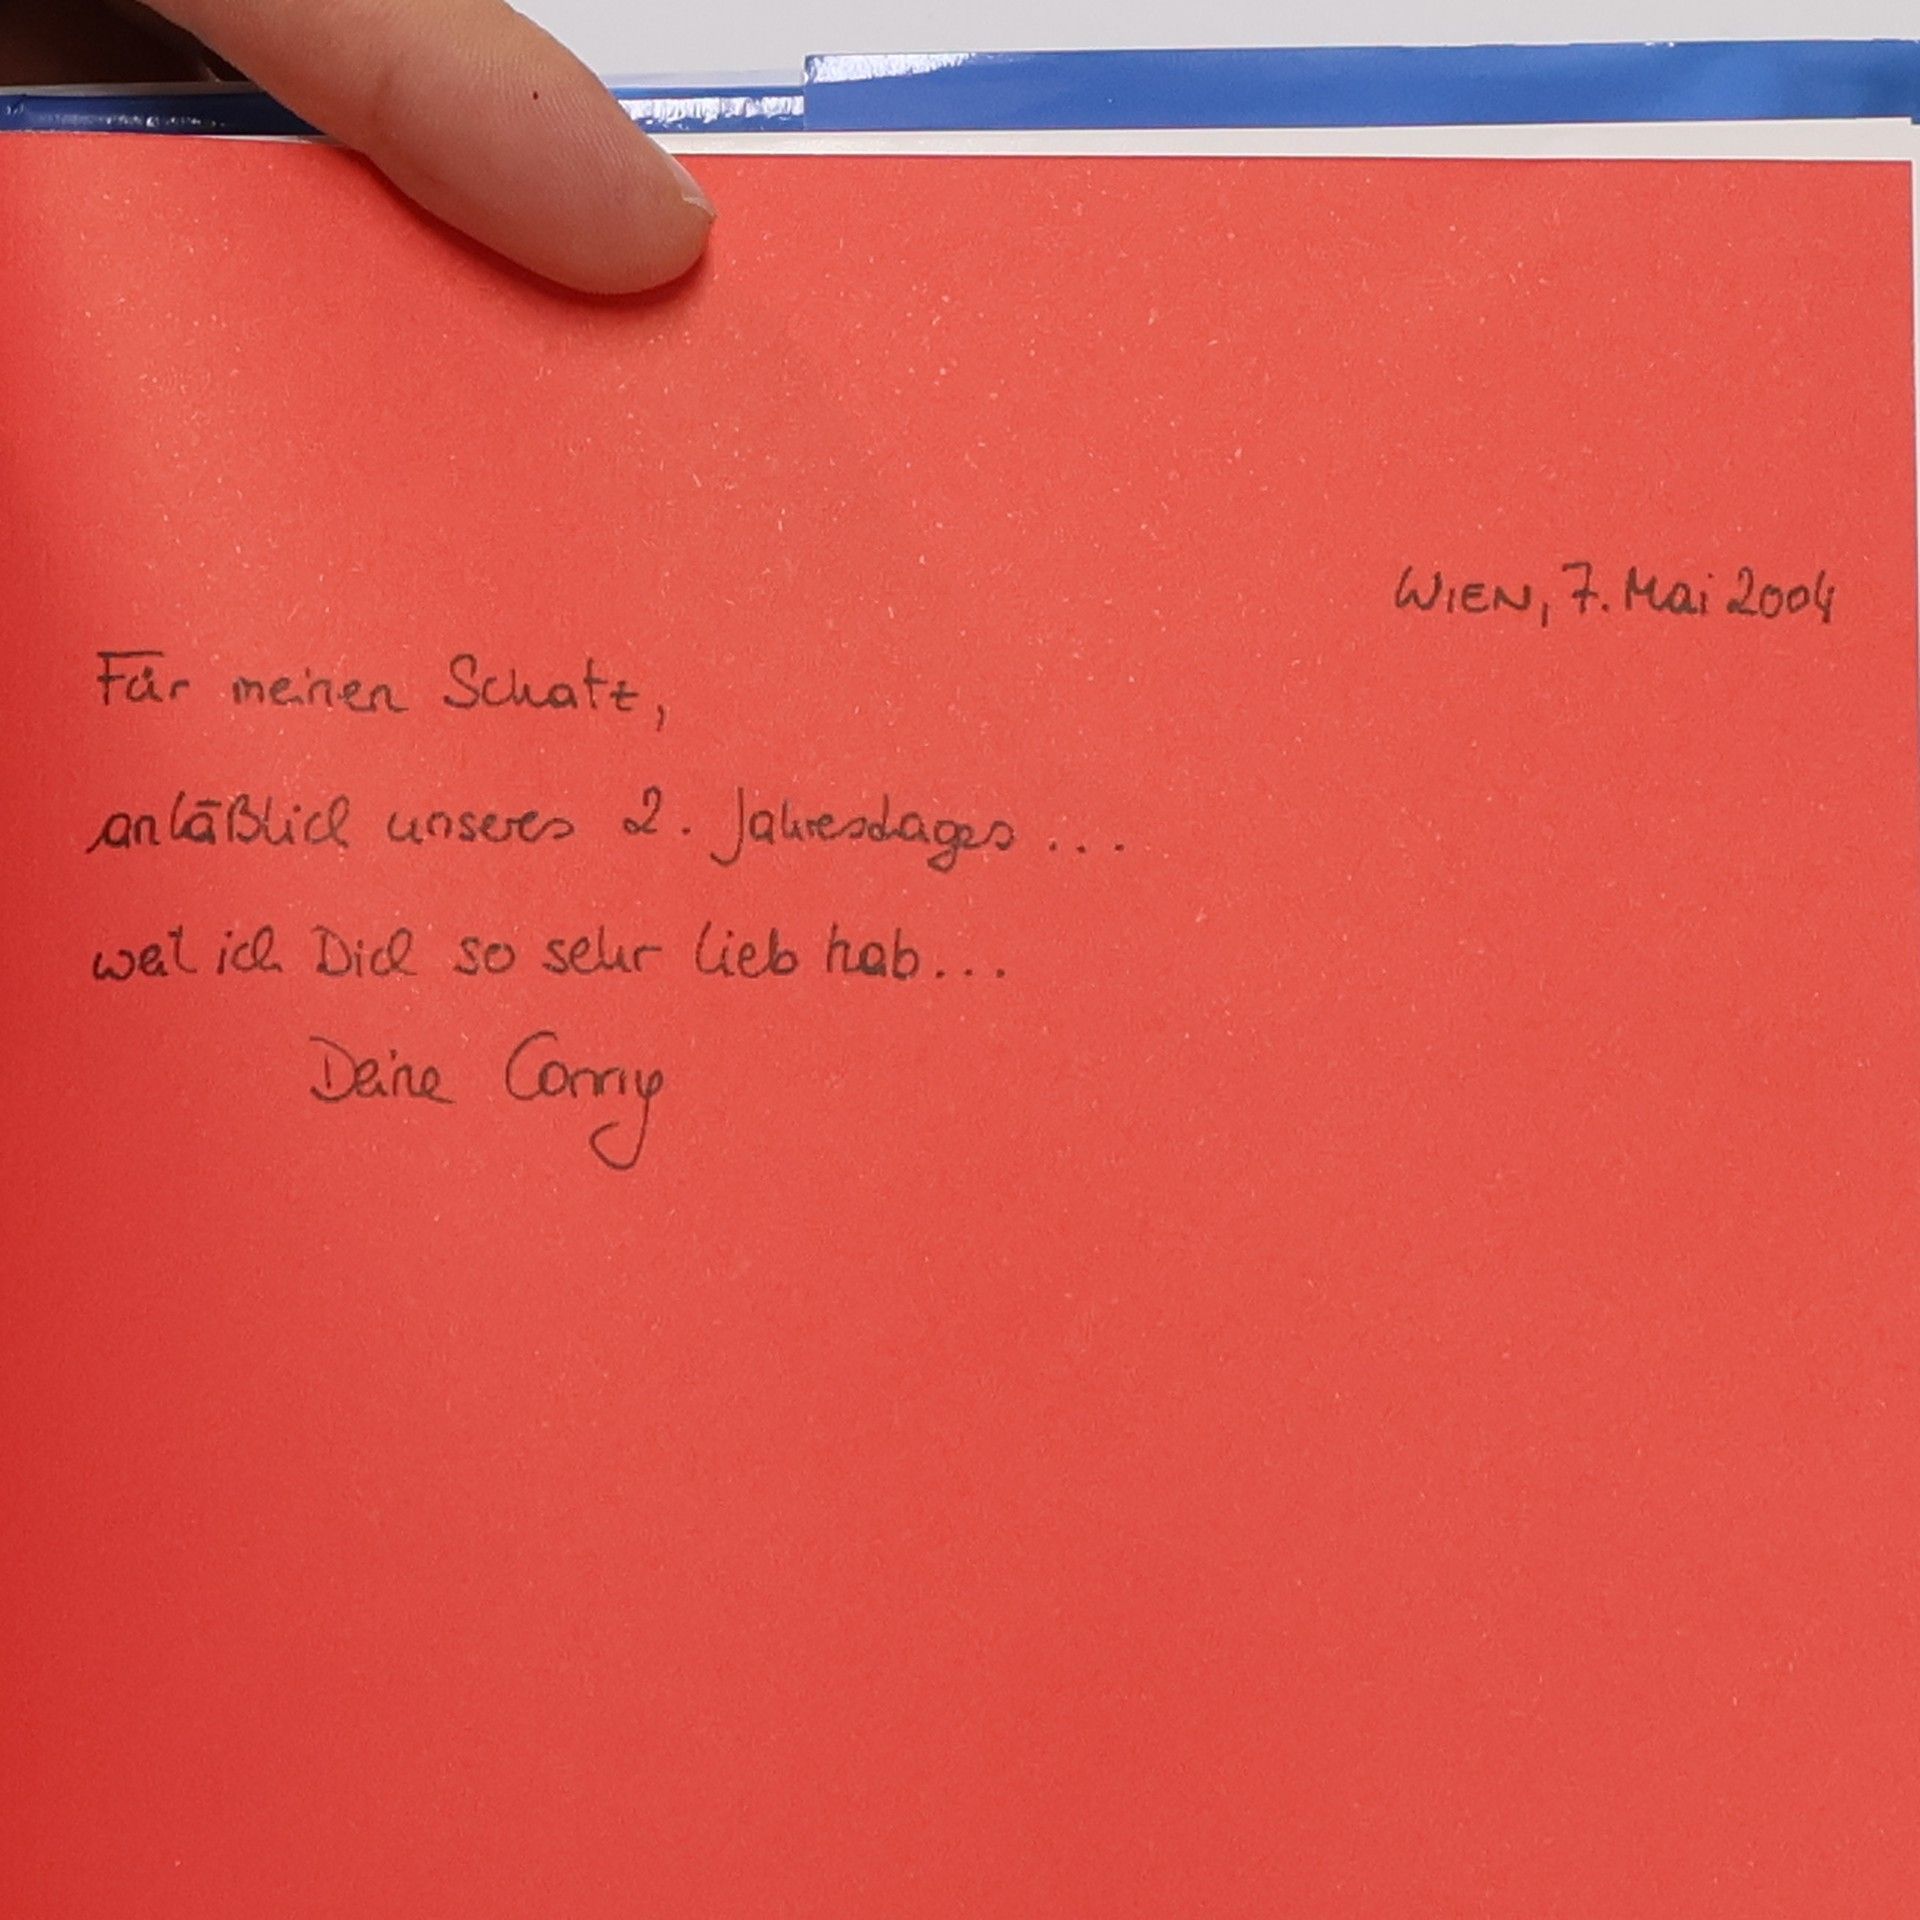 WIEN, 7. Mai 2004
Für meinen Schatz,
anläßlich unseres 2. Jahrestages ...
weil ich Dich so sehr lieb hab...
Deine Conny